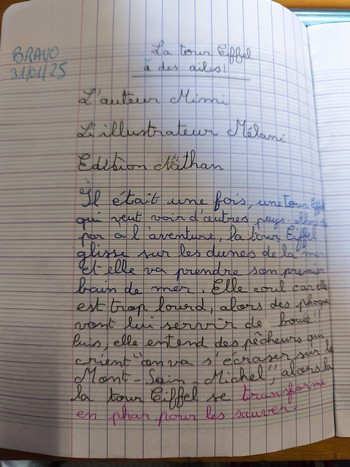 BRAVO
31/01/25
La tour Eiffel
a des ailes!
L'auteur Mimi
L'illustrateur Mélani
Edition Nathan
Il était une fois, une tour Eiffel
qui veut voir d'autres pays
par a l'aventure, la tour Eiffel
glisse sur les dunes de la mer
et elle va prendre son premier
bain de mer. Elle coul car elle
est trop lourd, alors des phoque
vont lui servir de bouée!
Puis, elle entend des pêcheurs qui
crient "on va s'écraser sur le
Mont-Sain-Michel", alors la
la tour Eiffel se transforme
en phar pour les sauver.